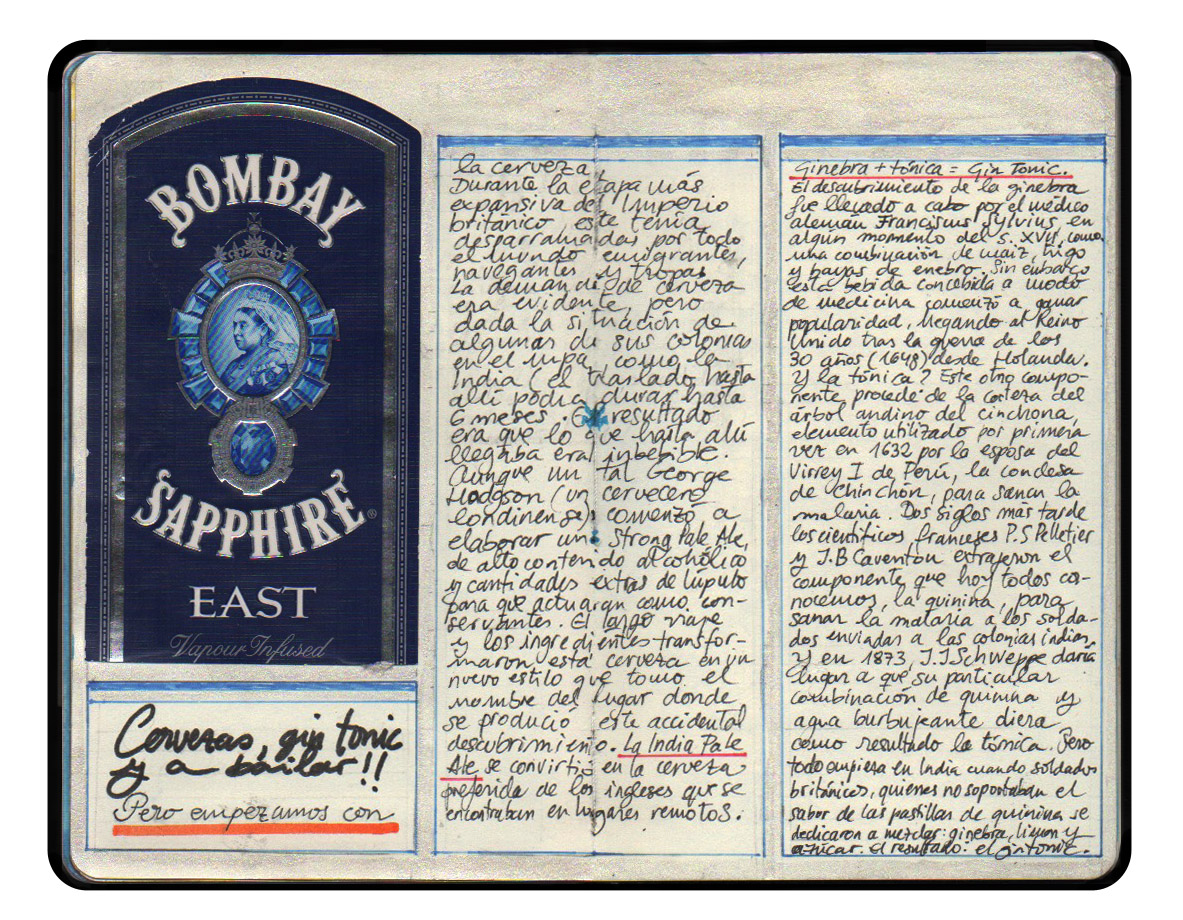 BOMBAY
SAPPHIRE®
EAST
Vapour Infused
Cervezas, gin tonic
y a bailar!!
Pero empezamos con
la cerveza
Durante la etapa más
expansiva del Imperio
británico, este tenía
desparramadas por todo
el mundo emigrantes,
navegantes y tropas
La demanda de cerveza
era evidente, pero
dada la situación de
algunas de sus colonias
en el mapa como la
India (el traslado hasta
allí podía durar hasta
6 meses. El resultado
era que lo que hasta allí
llegaba era imbebible.
Aunque un tal George
Hodgson (un cervecero
londinense) comenzó a
elaborar una Strong Pale Ale,
de alto contenido alcohólico
y cantidades extras de lúpulo
para que actuaran como con-
servantes. El largo viaje
y los ingredientes transfor-
maron esta cerveza en un
nuevo estilo que tomo el
nombre del lugar donde
se producio este accidental
descubrimiento. La India Pale
Ale se convirtió en la cerveza
preferida de los ingleses que se
encontraban en lugares remotos.
Ginebra + tónica = Gin Tonic.
El descubrimiento de la ginebra
fue llevado a cabo por el médico
alemán Franciscus Sylvius en
algún momento del s. XVII, como
una combinación de maiz, trigo
y bayas de enebro. Sin embargo
esta bebida concebida a modo
de medicina comenzó a ganar
popularidad, llegando al Reino
Unido tras la guerra de los
30 años (1648) desde Holanda.
Y la tónica? Este otro compo-
nente procede de la corteza del
árbol andino del cinchona,
elemento utilizado por primera
vez en 1632 por la esposa del
Virrey I de Perú, la condesa
de Chinchón, para sanar la
malaria. Dos siglos más tarde
los científicos franceses P.S Pelletier
y J.B Caventou extrajeron el
componente que hoy todos co-
nocemos, la quinina, para
sanar la malaria a los solda-
dos enviadas a las colonias indias.
Y en 1873, J.J Schweppe daría
lugar a que su particular
combinación de quinina y
agua burbujeante diera
como resultado la tónica. Pero
todo empieza en India cuando soldados
británicos, quienes no soportaban el
sabor de las pastillas de quinina se
dedicaron a mezclar: ginebra, limon y
azúcar. El resultado: el gintonic.